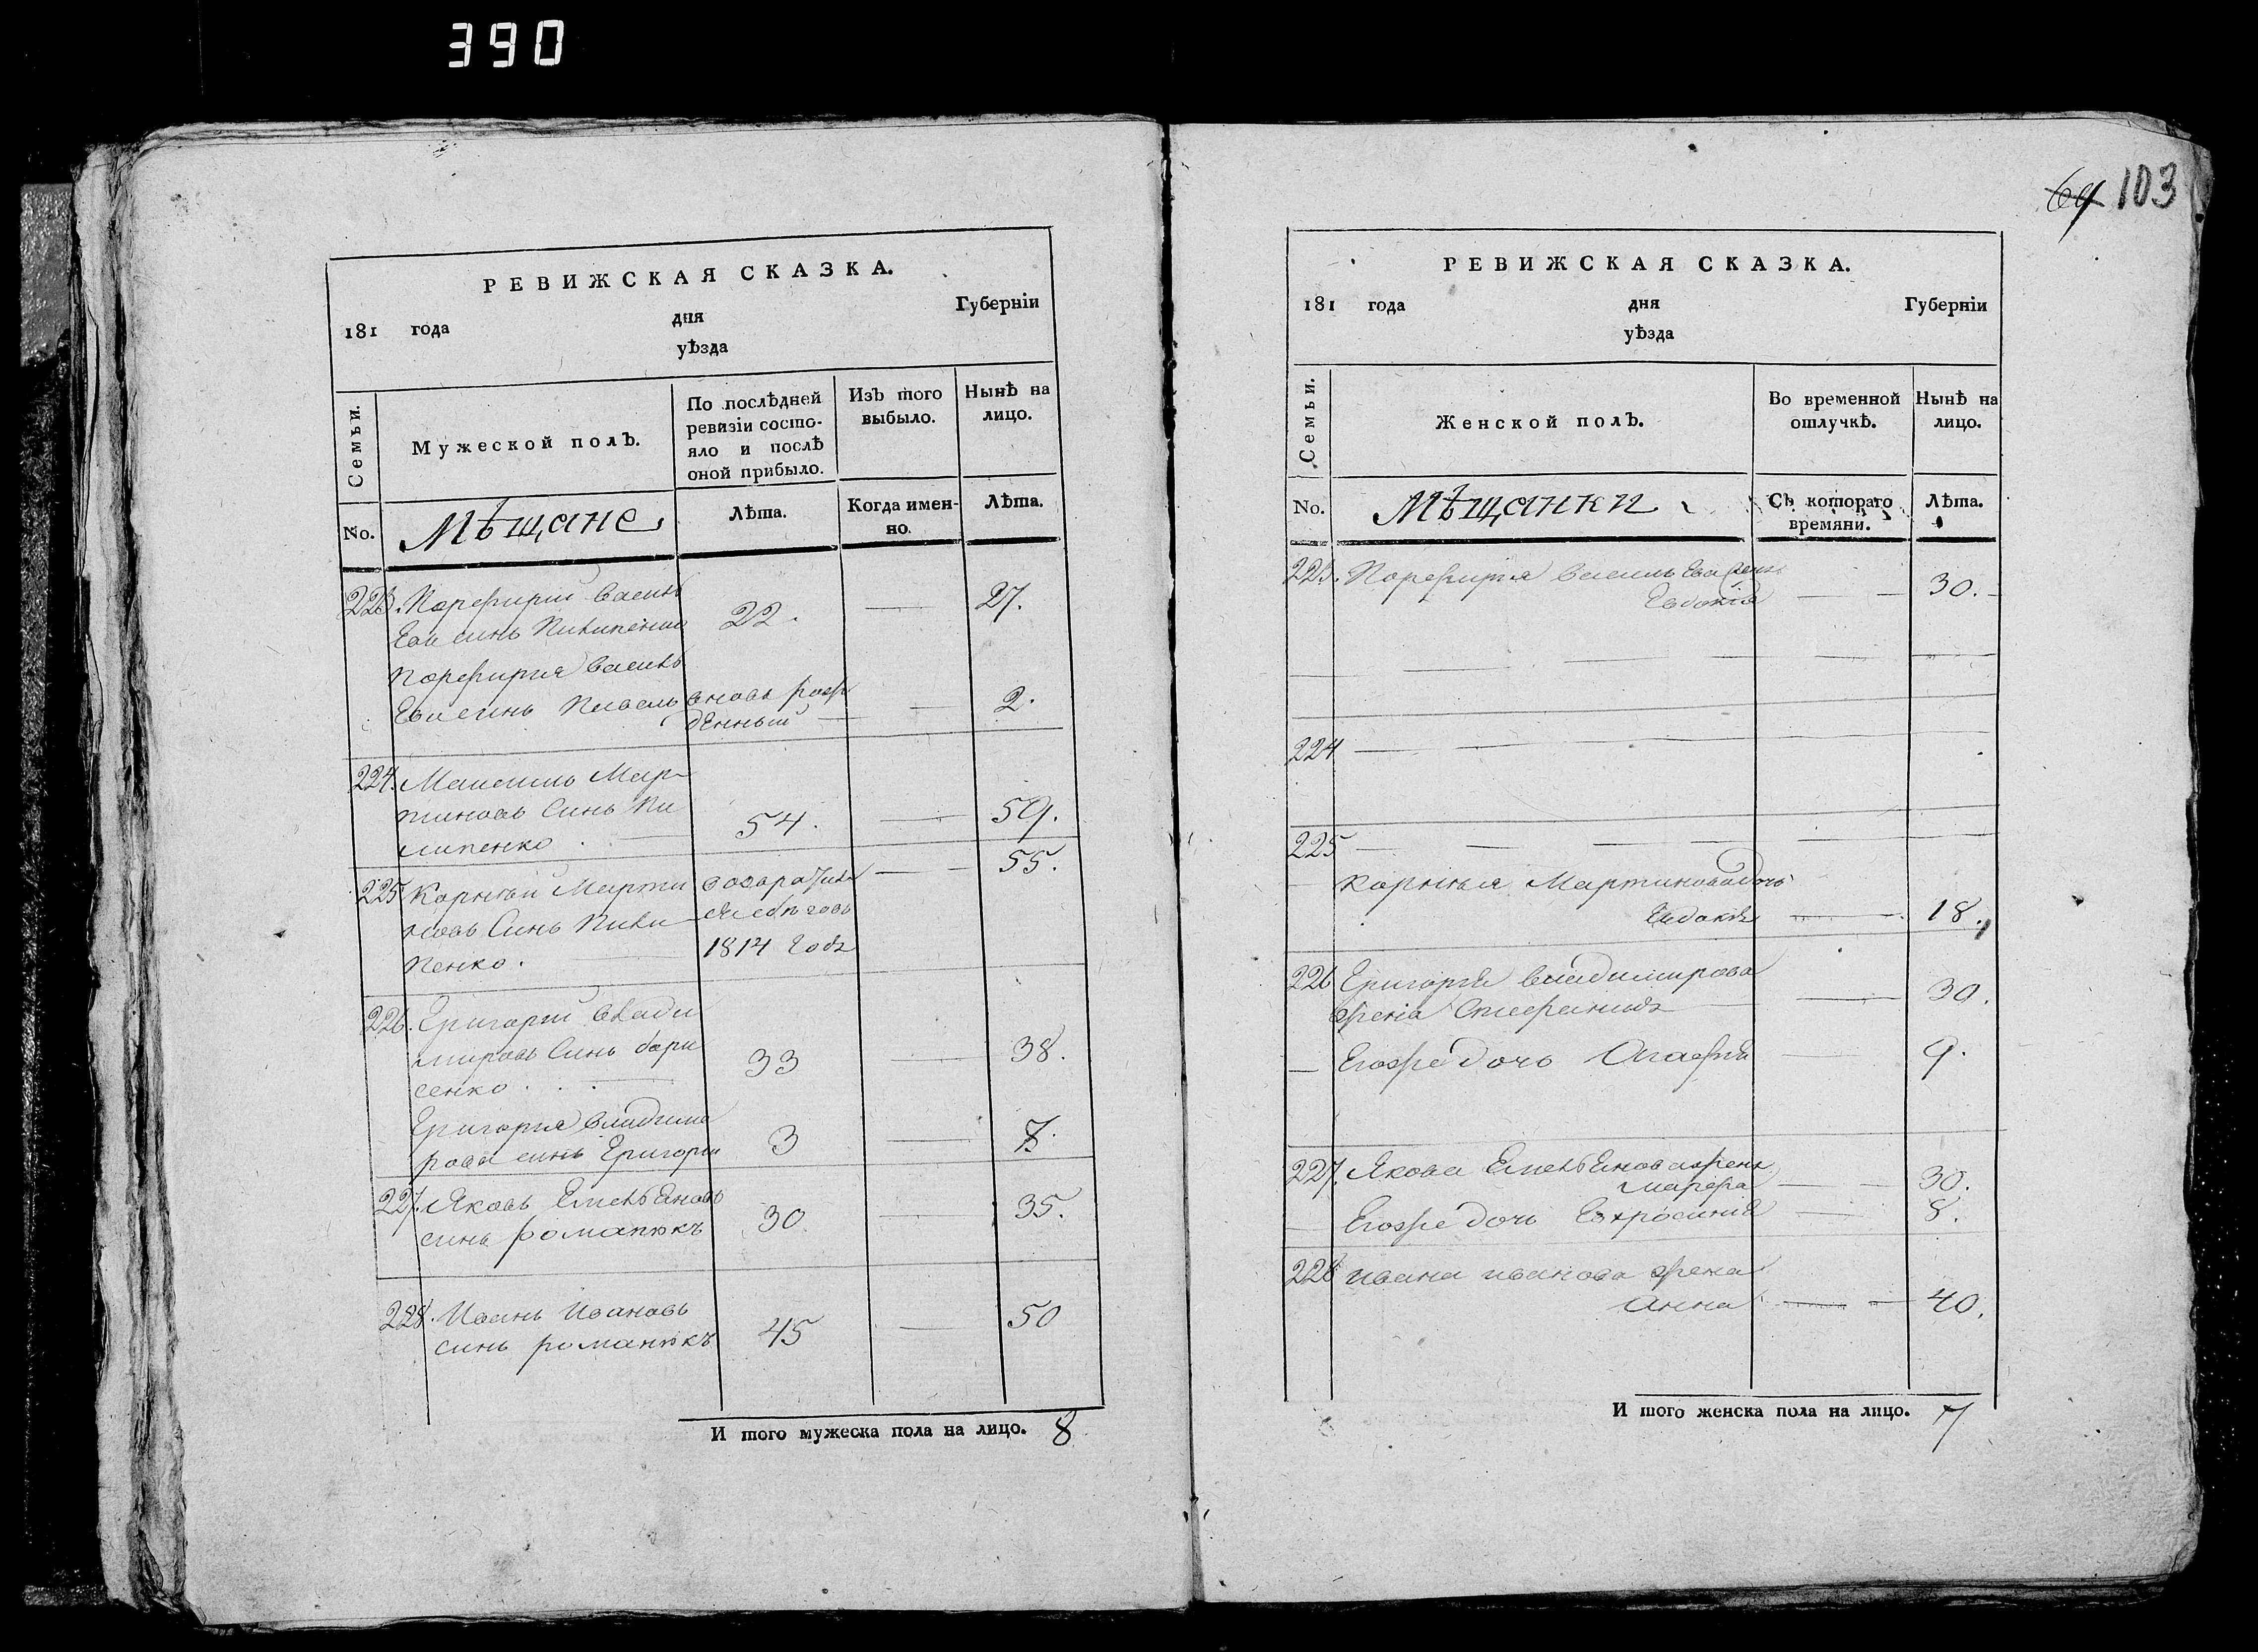 390
РЕВИЖСКАЯ СКАЗКА.
181 года дня Губерніи
уѣзда
Семьи.
Мужеской полъ.
По послѣдней ревизіи состо-
яло и послѣ оной прибыло.
Изъ того выбыло.
Нынѣ на лицо.
No. Мѣщане Лѣта. Когда имен-
но. Лѣта.
223. Порфирий Василь
евъ синъ Пилипенко 22. 27.
Порфирия Василь
ева синъ вновь рож
денный 2.
224. Мар-
тиновъ Синъ Пи
липенко 54. 59.
225 Корнѣй Марти 55.
новъ Синъ Пили
пенко. 1814 Года
226. Григорий Влади
мировъ Синъ бори 33 38.
сенко
Григория Владими
рова синъ Григорий 3 7.
227. Яковъ Емельяновъ
синъ романюкъ 30. 35.
228. Иванъ Ивановъ
синъ романюкъ 45 50
И того мужеска пола на лицо. 8
103
РЕВИЖСКАЯ СКАЗКА.
181 года дня Губерніи
уѣзда
Семьи.
Женской полъ.
Во временной отлучкѣ.
Нынѣ на лицо.
No. Мѣщанки Съ котораго времяни. Лѣта.
223. Порфирия Васильева жена
Евдокія 30.
224
225
Корнѣя Мартинова дочь
18.
226 Григория Владимирова
жена Стефанида 30.
Егоже дочь Агафия 9.
227. Якова Емельянова жена
Марфа 30.
Егоже дочь 8.
228 Ивана Иванова жена
Анна 40.
И того женска пола на лицо. 7